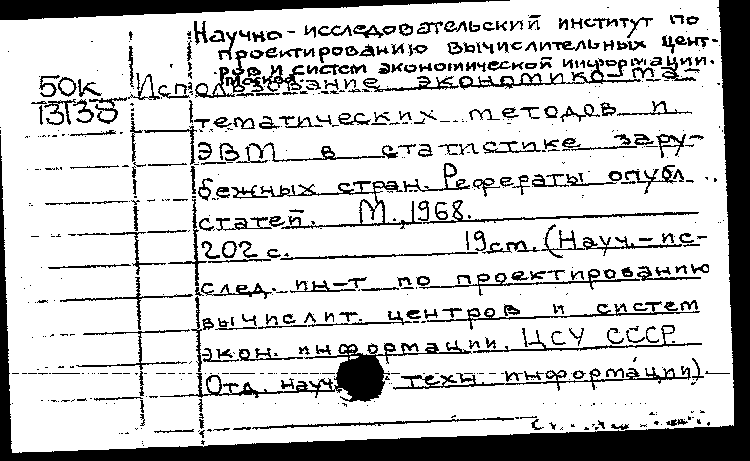 Научно-исследовательский институт по
проектированию вычислительных цент-
ров и систем экономической информации.
Москва.
50к
13138
Использование экономико-ма-
тематических методов и
ЭВМ в статистике зару-
бежных стран. Рефераты опубл.
статей. М., 1968.
202 с. 19 см. (Науч.-ис-
след. ин-т по проектированию
вычислит. центров и систем
экон. информации. ЦСУ СССР.
Отд. науч. техн. информации).